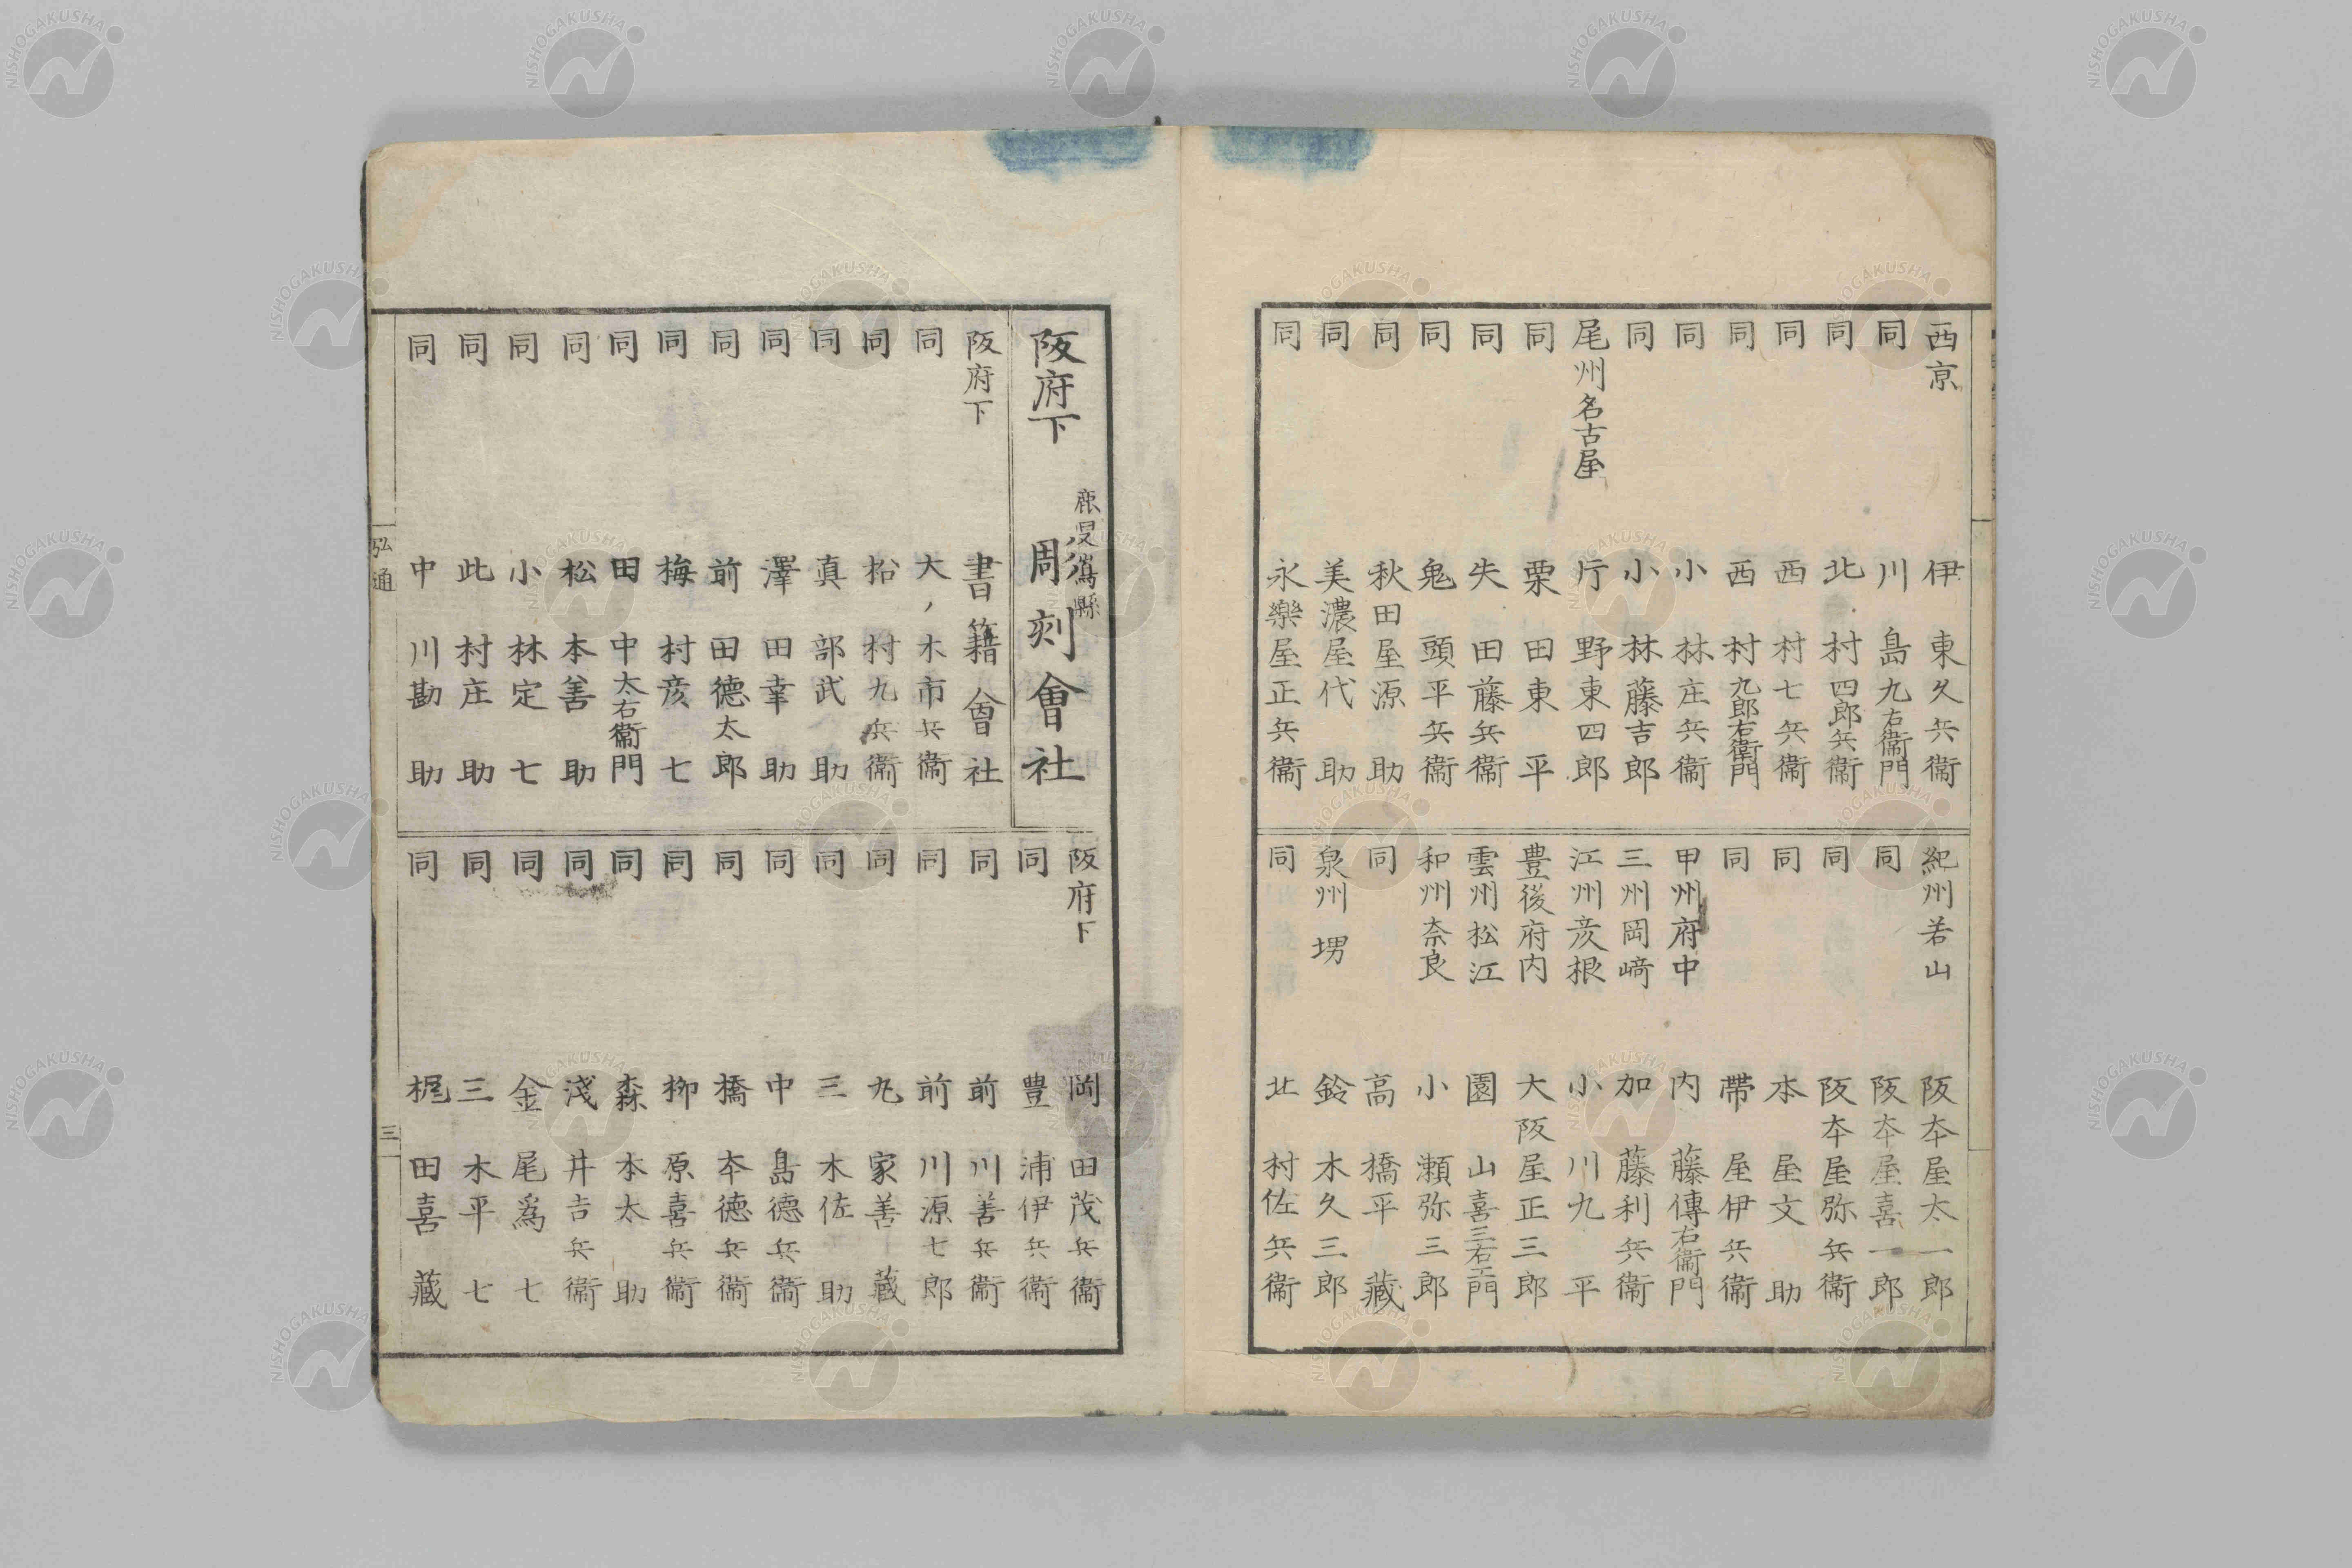 西京 伊東久兵衞
同 川島九右衞門
同 北村四郎兵衞
同 西村七兵衞
同 西村九郎右衞門
同 小林庄兵衞
同 小林藤吉郎
尾州名古屋 片野東四郎
同 栗田東平
同 矢田藤兵衞
同 鬼頭平兵衞
同 秋田屋源助
同 美濃屋代助
同 永樂屋正兵衞
紀州若山 阪本屋太一郎
同 阪本屋喜一郎
同 阪本屋弥兵衞
同 本屋文助
同 帶屋伊兵衞
甲州府中 内藤傳右衞門
三州岡﨑 加藤利兵衞
江州彦根 小川九平
豊後府内 大阪屋正三郎
雲州松江 園山喜三右エ門
和州奈良 小瀬弥三郎
同 高橋平藏
泉州堺 鈴木久三郎
同 北村佐兵衞
鹿児島縣
阪府下 周刻會社
阪府下 書籍會社
同 大木市兵衞
同 松村九兵衞
同 真部武助
同 澤田幸助
同 前田德太郎
同 梅村彦七
同 田中太右衞門
同 松本善助
同 小林定七
同 此村庄助
同 中川勘助
阪府下 岡田茂兵衞
同 豊浦伊兵衞
同 前川善兵衞
同 前川源七郎
同 九家善藏
同 三木佐助
同 中島德兵衞
同 橋本德兵衞
同 柳原喜兵衞
同 森本太助
同 淺井吉兵衞
同 金尾爲七
同 三木平七
同 梶田喜藏
弘通
三
NISHOGAKUSHA